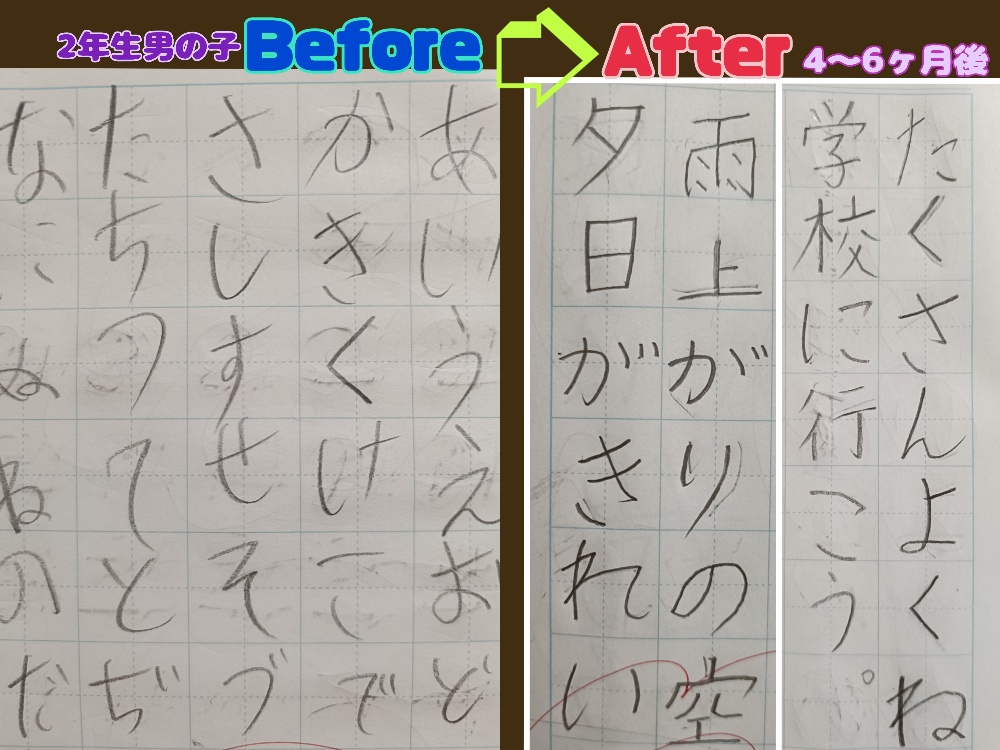 2年生男の子
Before
After
4～6ヶ月後
あいうえおど
かきくけこで
さしすせそづ
たちつてとぢ
なにぬねのだ
雨上がりの空
夕日がきれい
たくさんよくね
学校に行こう。